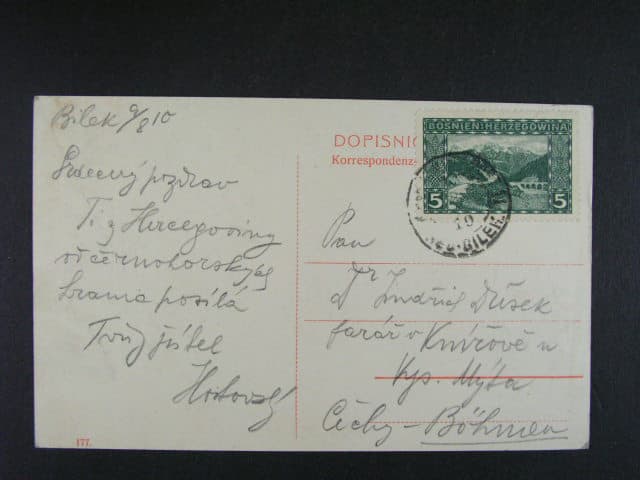 Bilek 9/8 10
Srdečný pozdrav
Ti z Hercegoviny
od černohorských
hranic posílá
Tvůj přítel
DOPISNI
Korrespondenz-
BOSNIEN HERZEGOWINA
5 5
10
BILEK
Pan
Dr Jindřich Dušek
farář v Knířově u
Vys. Mýta
Čechy – Böhmen
177.